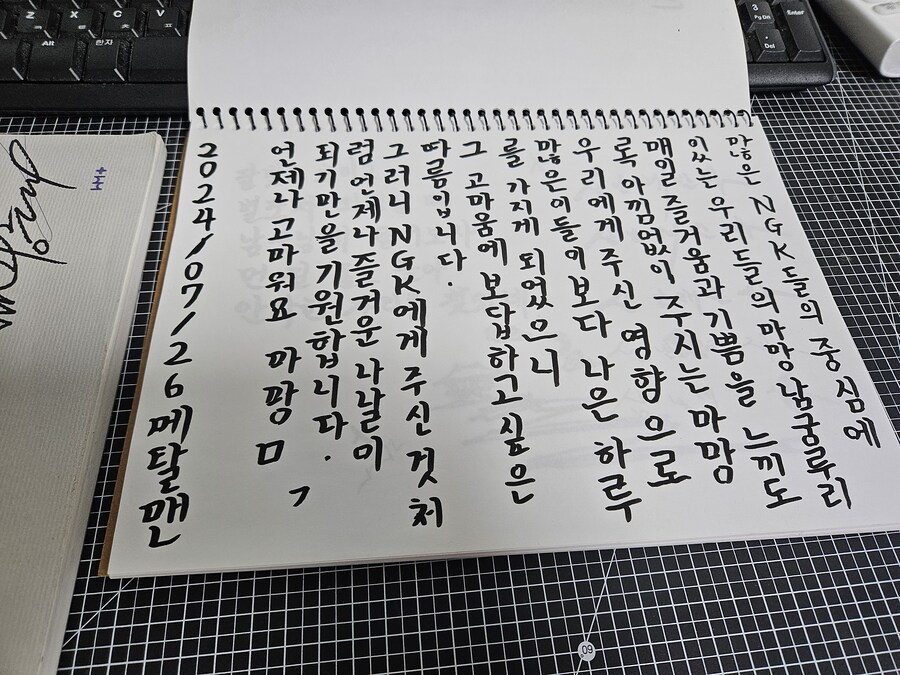 많은 NGK들의 중심에
있는 우리들의 마망 남궁루리
매일 즐거움과 기쁨을 느끼도
록 아낌없이 주시는 마망
우리에게 주신 영향으로
많은이들이 보다 나은 하루
를 가지게 되었으니
그 고마움에 보답하고 싶은
따름입니다.
그러니 NGK에게 주신 것처
럼 언제나 즐거운 나날이
되기만을 기원합니다.
언제나 고마워요 마망 ㅁㄱ
2024/07/26 메탈맨
Z X C V
Alt 한자
3 PgDn Enter
. Del
60